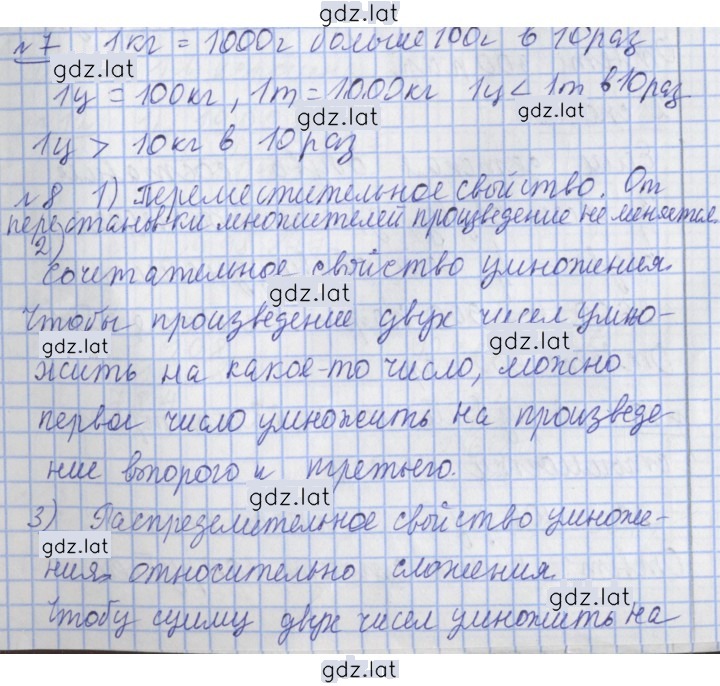 gdz.lat
№7 1кг = 1000г больше 100г в 10 раз
gdz.lat
1ц = 100кг, 1т = 1000кг 1ц < 1т в 10 раз
gdz.lat
gdz.lat
1ц > 10кг в 10 раз
gdz.lat
№8 1) Переместительное свойство. От
перестановки множителей произведение не меняется.
gdz.lat
2)
Сочетательное свойство умножения.
gdz.lat
Чтобы произведение двух чисел умно-
gdz.lat
gdz.lat
жить на какое-то число, можно
первое число умножить на произведе-
gdz.lat
ние второго и третьего.
gdz.lat
3) Распределительное свойство умноже-
gdz.lat
ния относительно сложения.
gdz.lat
Чтобы сумму двух чисел умножить на
gdz.lat